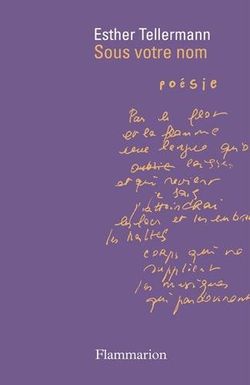 Esther Tellermann
Sous votre nom
poésie
Par le flot
et la flamme
une langue qu'o
laisse
et qui revient
je sais
j'atteindrai
et les
les haltes
corps qui ne
supplient
les musiques
qui parcourent
Flammarion